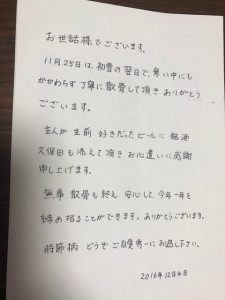 お世話様でございます。
11月25日は、初雪の翌日で、寒い中にも
かかわらず丁寧に散骨して頂きありがとう
ございます。
主人が生前好きだったビールに銘酒
久保田も添えて頂きお心遣いに感謝
申し上げます。
無事散骨も終え安心して、今年一年を
締め括ることができます。ありがとうございます。
時節柄どうぞご自愛専一にお過し下さい。
2016年12月4日